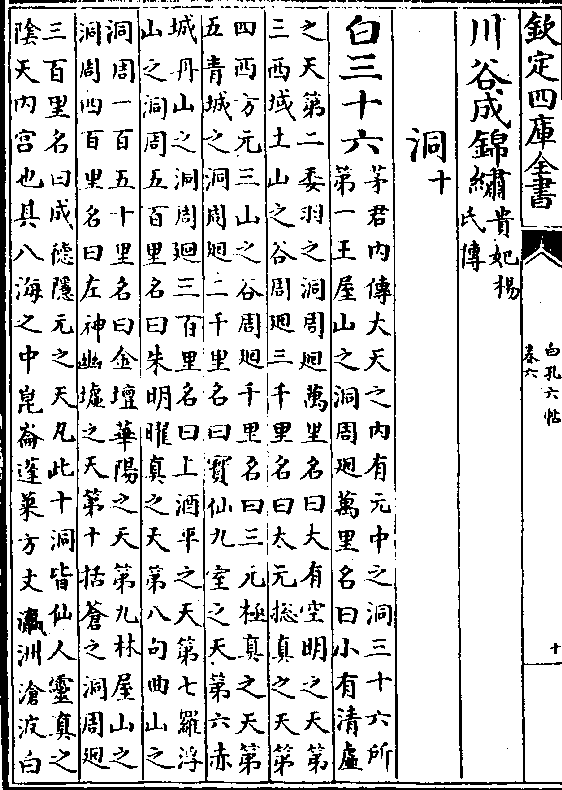 欽定四庫全書
白孔六帖
卷六
十
川谷成錦繡貴妃楊
氏傳
洞十
白三十六茅君內傳大天之內有元中之洞三十六所
第一王屋山之洞周廻萬里名曰小有清虛
之天第二委羽之洞周廻萬里名曰大有空明之天第
三西城土山之谷周廻三千里名曰太元㧾真之天第
四西方元三山之谷周廻千里名曰三元極真之天第
五青城之洞周廻二千里名曰寳仙九室之天第六赤
城丹山之洞周廻三百里名曰上酒平之天第七羅浮
山之洞周五百里名曰朱明曜真之天第八句曲山之
洞周一百五十里名曰金壇華陽之天第九林屋山之
洞周四百里名曰左神幽墟之天第十括蒼之洞周廻
三百里名曰成德隱元之天凡此十洞皆仙人靈真之
陰天內宫也具八海之中崑崙蓬萊方丈瀛洲滄波白